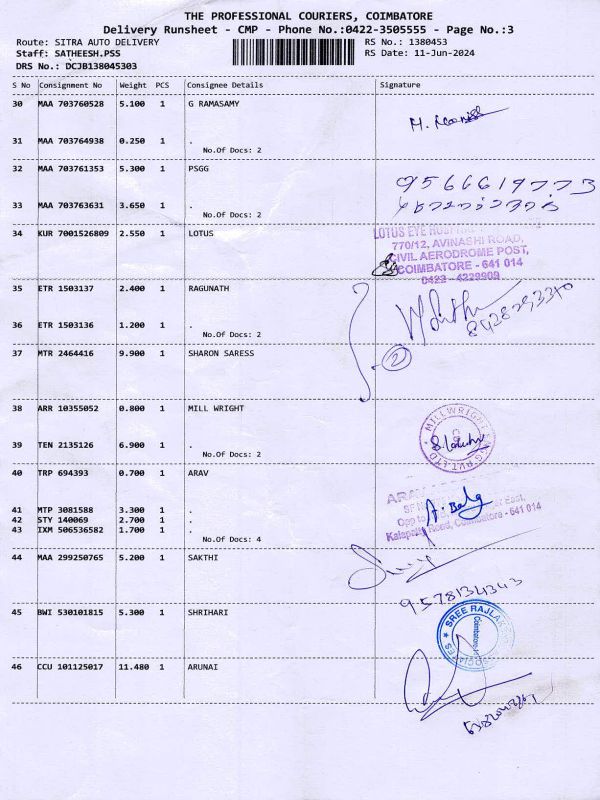 THE PROFESSIONAL COURIERS, COIMBATORE
Delivery Runsheet - CMP - Phone No.:0422-3505555 - Page No.:3
Route: SITRA AUTO DELIVERY RS No.: 1380453
Staff: SATHEESH.PSS RS Date: 11-Jun-2024
DRS No.: DCJB138045303
S No Consignment No Weight PCS Consignee Details Signature
30 MAA 703760528 5.100 1 G RAMASAMY
31 MAA 703764938 0.250 1 .
No.Of Docs: 2
32 MAA 703761353 5.300 1 PSGG
9566619773
33 MAA 703763631 3.650 1 .
No.Of Docs: 2
34 KUR 7001526809 2.550 1 LOTUS
LOTUS EYE HOSPITAL
770/12, AVINASHI ROAD,
CIVIL AERODROME POST,
COIMBATORE - 641 014
0422 - 4229909
35 ETR 1503137 2.400 1 RAGUNATH
36 ETR 1503136 1.200 1 .
No.Of Docs: 2
37 MTR 2464416 9.900 1 SHARON SARESS
2
38 ARR 10355052 0.800 1 MILL WRIGHT
MILLWRIGHT
39 TEN 2135126 6.900 1 .
No.Of Docs: 2
40 TRP 694393 0.700 1 ARAV
41 MTP 3081588 3.300 1 .
42 STY 140069 2.700 1 .
43 IXM 506536582 1.700 1 .
No.Of Docs: 4
Kalapatty Road, Coimbatore - 641 014
44 MAA 299250765 5.200 1 SAKTHI
9578134343
45 BWI 530101815 5.300 1 SHRIHARI
46 CCU 101125017 11.480 1 ARUNAI